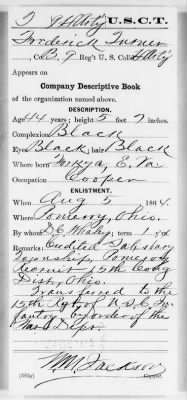 T 9 H Arty U.S.C.T.
Frederick Turner
, Co. B, 9 Reg't U. S. Col'd H Arty
Appears on
Company Descriptive Book
of the organization named above.
DESCRIPTION.
Age 44 years; height 5 feet 7 inches.
Complexion Black
Eyes Black; hair Black
Where born E. Va
Occupation Cooper
ENLISTMENT.
When Aug 5, 1864.
Where Pomeroy, Ohio.
By whom D. C. Whaley; term 1 y'rs.
Remarks: Credited Salsbury
Township, Pomeroy
Recruit 15th Cong
Dist, Ohio.
Transferred to the
15th Regt of U.S.C. In-
fantry by order of the
War Dept.
W.M. Jackson
Copyist.